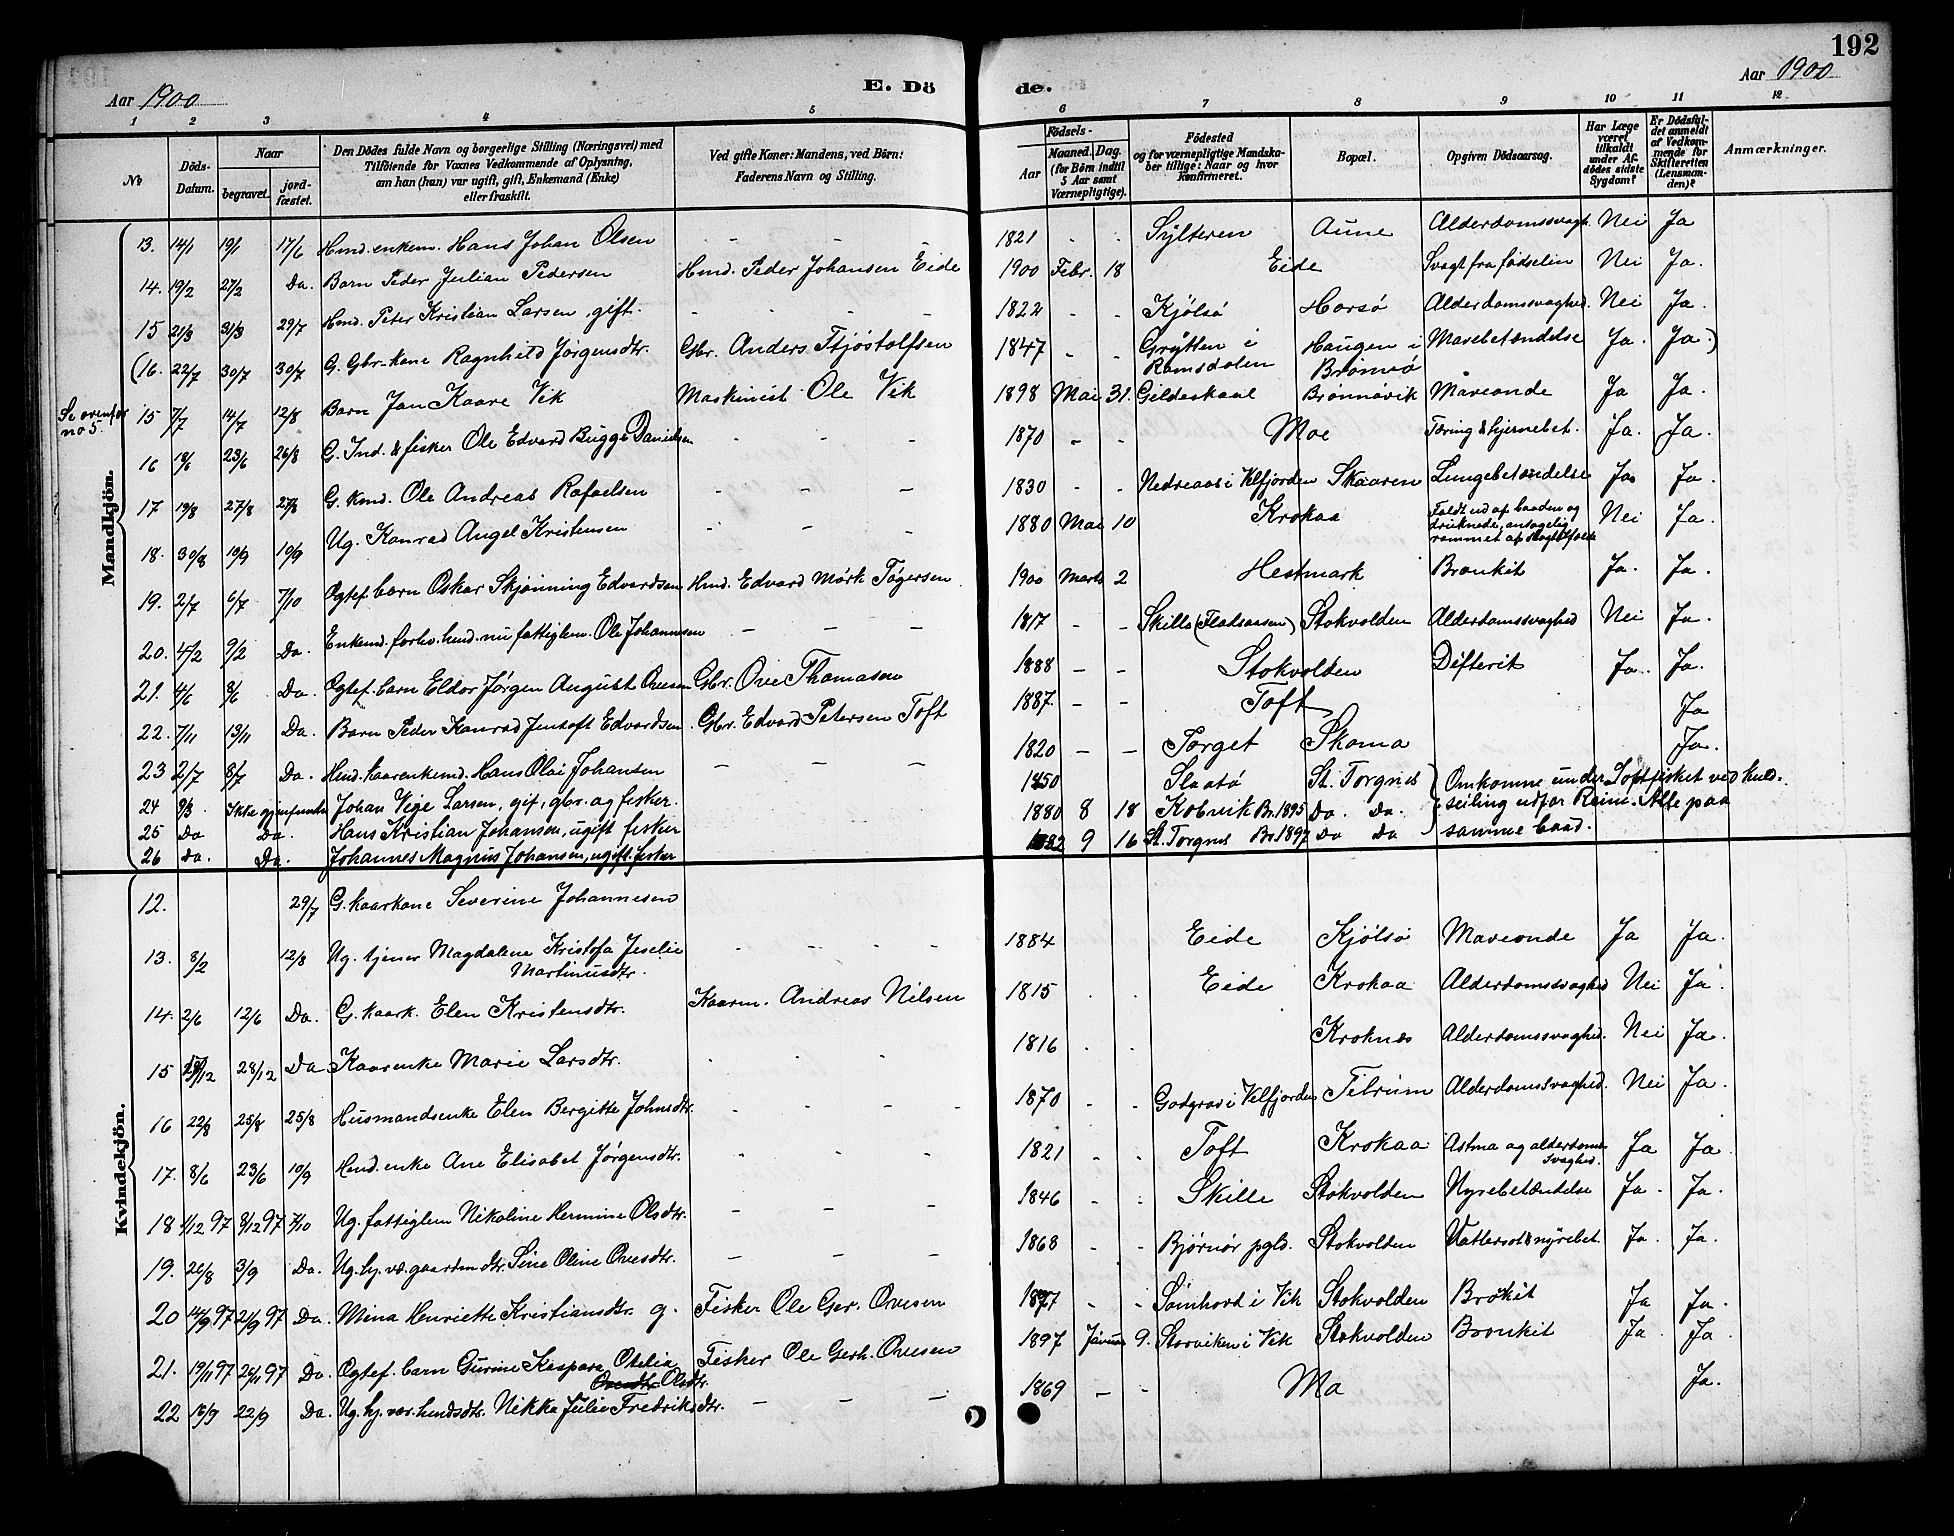 192
Aar 1900
E. Dö de.
Aar 1900
1 2 3 4 5 6 7 8 9 10 11 12
№
Döds-Datum.
Naar
begravet.
jord-fæstet.
Den Dödes fulde Navn og borgerlige Stilling (Næringsvei) med
Tilföiende for Voxnes Vedkommende af Oplysning,
om han (hun) var ugift, gift, Enkemand (Enke)
eller fraskilt.
Ved gifte Koner: Mandens, ved Börn:
Faderens Navn og Stilling.
Födsels-
Aar
Maaned. Dag.
(for Börn indtil
5 Aar samt
Værnepligtige).
Födested
og for værnepligtige Mandska-
ber tillige: Naar og hvor
konfirmeret.
Bopæl.
Opgiven Dödsaarsag.
Har Læge
været
tilkaldt
under Af-
dödes sidste
Sygdom?
Er Dödsfal-
det anmeldt
af Vedkom-
mende for
Skifteretten
(Lensman-
den)?
Anmærkninger.
Mandkjön.
13. 14/1 19/1 17/6 Hmd. enkem. Hans Johan Olsen - - - 1821 - - Sylteren Aune Alderdomssvagh. Nei Ja
14. 19/2 27/2 Do. Barn Peder Julian Pedersen Hmd. Peder Johansen Eide 1900 Febr. 18 Eide Svagt fra fødselen Nei Ja.
15 21/3 31/3 29/7 Hmd. Peter Kristian Larsen, gift. - - - 1822 - - Kjölsö Horsö Alderdomssvaghed. Nei Ja.
(16. 22/7 30/7 30/7 G. Gbr-kone Ragnhild Jørgensdtr. Gbr. Anders Tjöstolfsen 1847 - - Grytten i Romsdalen Haugen i Brønnö Mavebetændelse Ja. Ja.)
Se ovenfor no 5.
15 7/7 14/7 12/8 Barn Jan Kaare Vik Maskinist Ole Vik 1898 Mai 31. Gildeskaal Brønnøvik Maveonde Ja Ja.
16 18/6 23/6 26/8 G. Ind. & fisker Ole Edvard Bugge Danielsen - - - 1870 - - Moe Tæring & hjernebet. Ja. Ja.
17 19/8 27/8 27/8 G. kmd. Ole Andreas Rafaelsen - - - 1830 - - Nedreaas i Velfjorden Skaaren Lungebetændelse Ja. Ja.
18. 30/8 10/9 10/9 Ug. Konrad Angel Kristensen - - - 1880 Mai 10 Krokaa Faldt ud af baaden og druknede, antagelig rammet af slagtilfælde Nei Ja.
19. 2/7 6/7 7/10 Ogtef. barn Oskar Skjønning Edvardsen Hmd. Edvard Mørk Tøgersen 1900 Marts 2 Hestmark Bronkit Ja. Ja.
20. 4/2 9/2 Do. Enkemd. forhv. hmd. nu fattiglem. Ole Johannesen - - - 1817 - - Skille (Fladaasen) Stokvolden Alderdomssvaghed Nei Ja.
21. 4/6 8/6 Do. Ogtef. barn Eldor Jørgen August Ovesen Gbr. Ove Thomasen 1888 - - Stokvolden Difterit Ja. Ja.
22. 7/11 13/11 Do. Barn Peder Konrad Jentoft Edvardsen. Gbr. Edvard Petersen Toft 1887. - - Toft Ja
23 2/7 8/7 Do. Hmd. kaarenkemd. Hans Olai Johansen - - - 1820 - - Torget Skomo Ja.
24 9/3 Ikke gjenfunden Johan Vige Larsen, gift, gbr. og fisker. 1850 Slaatö St. Torgnes Omkomne under Lofotfisket ved kuld-
25 Do Do. Hans Kristian Johansen, ugift fisker 1880 8 18 Kobvik Br. 1895 Do. Do. seiling udfor Reine. Alle paa
26 Do. Do. Johannes Magnus Johansen, ugift fisker 1882 9 16 St. Torgnes Br. 1897 Do Do samme baad.
Kvindekjön.
12. 29/7 G. kaarkone Severine Johannesen
13. 8/2 12/8 Ug. tjener Magdalene Kristofa Jeselie Martinusdtr. - - - 1884 Eide Kjölsö Maveonde Ja Ja.
14. 2/6 12/6 Do. G. kaark. Elen Kristensdtr. Kaarm. Andreas Nilsen 1815 - - Eide Krokaa Alderdomssvaghed Nei Ja.
15 /12 28/12 Do Kaarenke Marie Larsdtr. - - - 1816 - - Kroknes Alderdomssvaghed. Nei Ja.
16 22/8 25/8 25/8 Husmandsenke Elen Bergitte Johnsdtr. - - - 1870 - - Godgras i Velfjorden Tilrum Alderdomssvaghed. Nei Ja.
17. 8/6 23/6 10/9 Hmd. enke Ane Elisabet Jørgensdtr. - - - 1821 - - Toft Krokaa Astma og alderdoms-svaghed. Ja Ja.
18 1/12 97 8/12 97 7/10 Ug. fattiglem Nikoline Hermine Olsdtr. - - - 1846 - - Skille Stokvolden Nyrebetændelse Ja. Ja.
19. 26/8 3/9 Do. Ug. hj. væ. gaardmdtr. Sine Oline Ovesdtr. - - - 1868 - - Bjørnør pgld. Stokvolden Vattersot & nyrebet. Ja. Ja.
20 14/9 97 21/9 97 Do. Mina Henriette Kristiansdtr. g. Fisker Ole Ger. Ovesen 1877 - - Sømhovd i Vik Stokvolden Brokit Ja Ja.
21. 19/11 97 26/11 97 Do. Ogtef. barn Gurine Kaspara Otelia Olsdtr. Fisker Ole Gerh. Ovesen 1897 Januar 9. Storviken i Vik Stokvolden Bronkit Ja Ja.
22 16/9 22/9 Do. Ug. hj. vær. hmdsdtr. Nikka Julie Fredriksdtr. - - - 1869 - - Mo Ja.